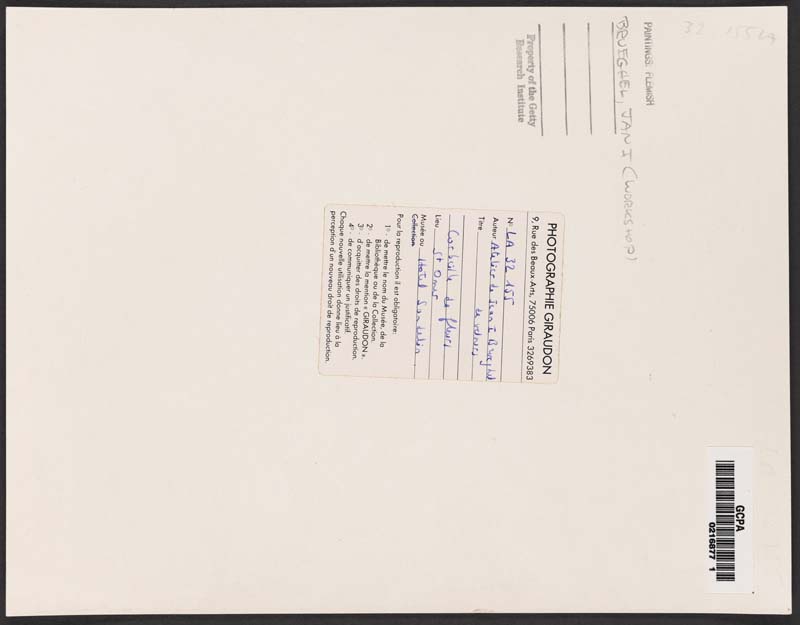 32.155LA
PAINTINGS: FLEMISH
BRUEGHEL, JAN I (WORKSHOP)
Property of the Getty
Research Institute
PHOTOGRAPHIE GIRAUDON
9, Rue des Beaux Arts, 75006 Paris 3269383
N° LA 32 155
Auteur Atelier de Jean I Brueghel
de velours
Titre
Corbeille de fleurs
Lieu St Omer
Musée ou Hotel Sandelin
Collection
Pour la reproduction il est obligatoire:
1° - de mettre le nom du Musée, de la
Bibliothèque ou de la Collection.
2° - de mettre la mention « GIRAUDON ».
3° - d'acquitter des droits de reproduction.
4° - de communiquer un justificatif.
Chaque nouvelle utilisation donne lieu à la
perception d'un nouveau droit de reproduction.
GCPA
0216877 1